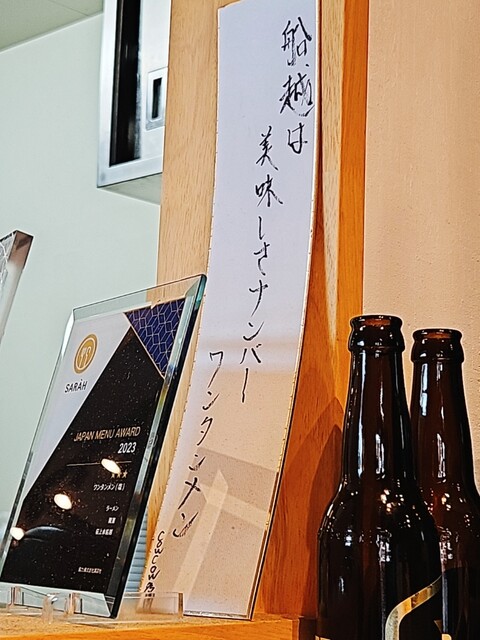 船越は
美味しさナンバー
ワンタンメン
SARAH
JAPAN MENU AWARD
2023
ワンタンメン(塩)
ラーメン